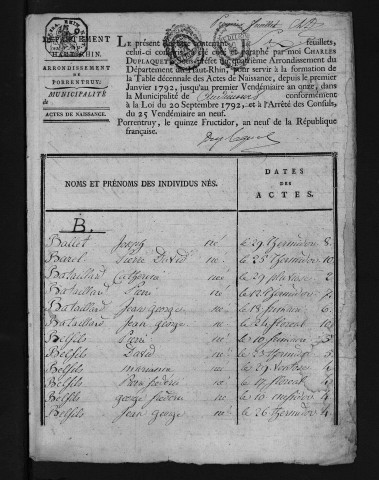 DÉPARTEMENT
DU HAUT-RHIN.
ARRONDISSEMENT
DE
PORRENTRUY.
MUNICIPALITÉ
DE
ACTES DE NAISSANCE.
Le présent feuillets,
celui-ci compris, a été coté et paraphé par moi CHARLES
DUPLAQUET, Sous-préfet du quatrième Arrondissement du
Département du Haut-Rhin, pour servir à la formation de
la Table décennale des Actes de Naissance, depuis le premier
Janvier 1792, jusqu'au premier Vendémiaire an onze, dans
la Municipalité de conformément
à la Loi du 20 Septembre 1792, et à l'Arrêté des Consuls,
du 25 Vendémiaire an neuf.
Porrentruy, le quinze Fructidor, an neuf de la République
française.
NOMS ET PRÉNOMS DES INDIVIDUS NÉS.
DATES
DES
ACTES.
B.
Ballet Joseph né le 29 thermidor 8
Barel Pierre David né le 25 thermidor 10
Bataillard Catherine née le 29 pluviose 2
Bataillard Pierre né le 12 thermidor 7
Bataillard Jean george né le 18 frimaire 6
Bataillard Jean george né le 24 floreal 10
Belfils Pierre né le 10 frimaire 5
Belfils David né le 25 thermidor 5
Belfils née le 29 ventose 4
Belfils frederic né le 19 floreal 6
Belfils george frederic né le 10 4
Belfils Jean george né le 26 thermidor 4